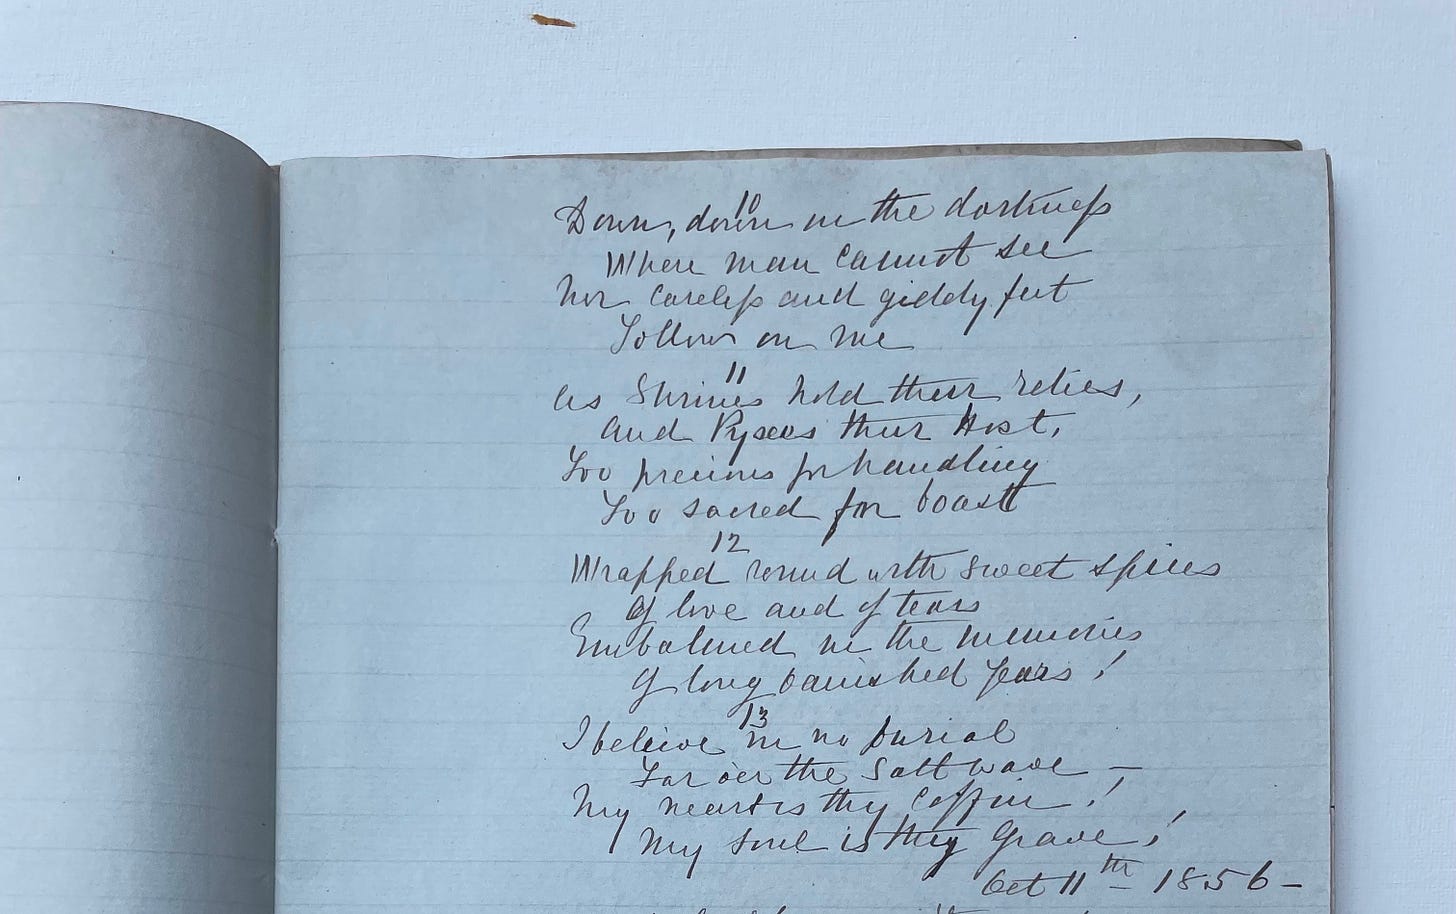 10
Down, down in the darkness
Where man cannot see
Nor careless and giddy feet
Follow on me
11
As Shrines hold their relics,
And Pyxes their Host,
Too precious for handling
Too sacred for boast
12
Wrapped round with sweet spices
Of love and of tears
Embalmed in the memories
Of long banished years!
13
I believe in no burial
Far o'er the Salt wave —
My heart is thy Coffin!
My soul is thy Grave!
Oct 11th 1856 –